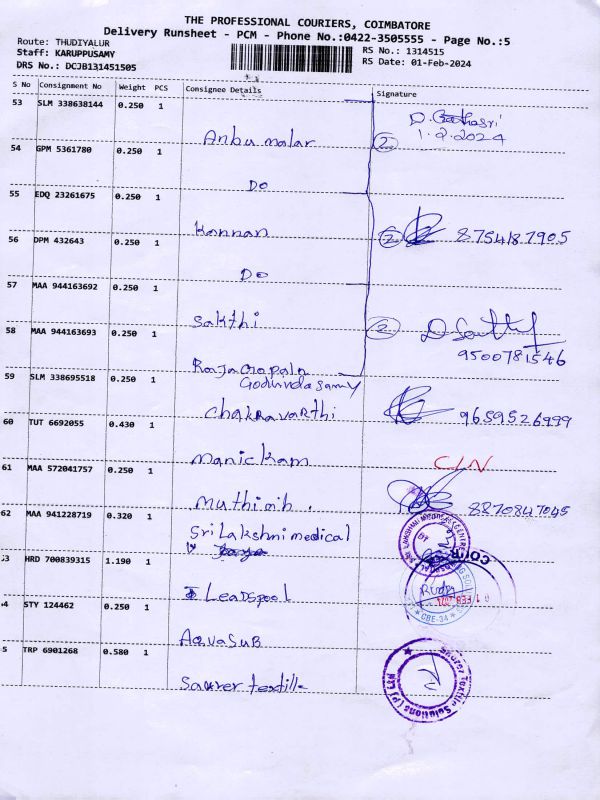 THE PROFESSIONAL COURIERS, COIMBATORE
Delivery Runsheet - PCM - Phone No.:0422-3505555 - Page No.:5
Route: THUDIYALUR
Staff: KARUPPUSAMY
DRS No.: DCJB131451505
RS No.: 1314515
RS Date: 01-Feb-2024
S No Consignment No Weight PCS Consignee Details Signature
53 SLM 338638144 0.250 1
Anbu malar 2 1.2.2024
54 GPM 5361780 0.250 1
DO
55 EDQ 23261675 0.250 1
Kannan 2 8754187905
56 DPM 432643 0.250 1
DO
57 MAA 944163692 0.250 1
Sakthi 2
9500781546
58 MAA 944163693 0.250 1
RajaGopala
Godhindasamy
59 SLM 338695518 0.250 1
Chakravarthi 9659526999
60 TUT 6692055 0.430 1
Manickam C/N
61 MAA 572041757 0.250 1
8870847045
62 MAA 941228719 0.320 1
Sri Lakshmi medical
3 HRD 700839315 1.190 1
Leadspool
CBE-34
4 STY 124462 0.250 1
AqvaSub
5 TRP 6901268 0.580 1
Saurer textile